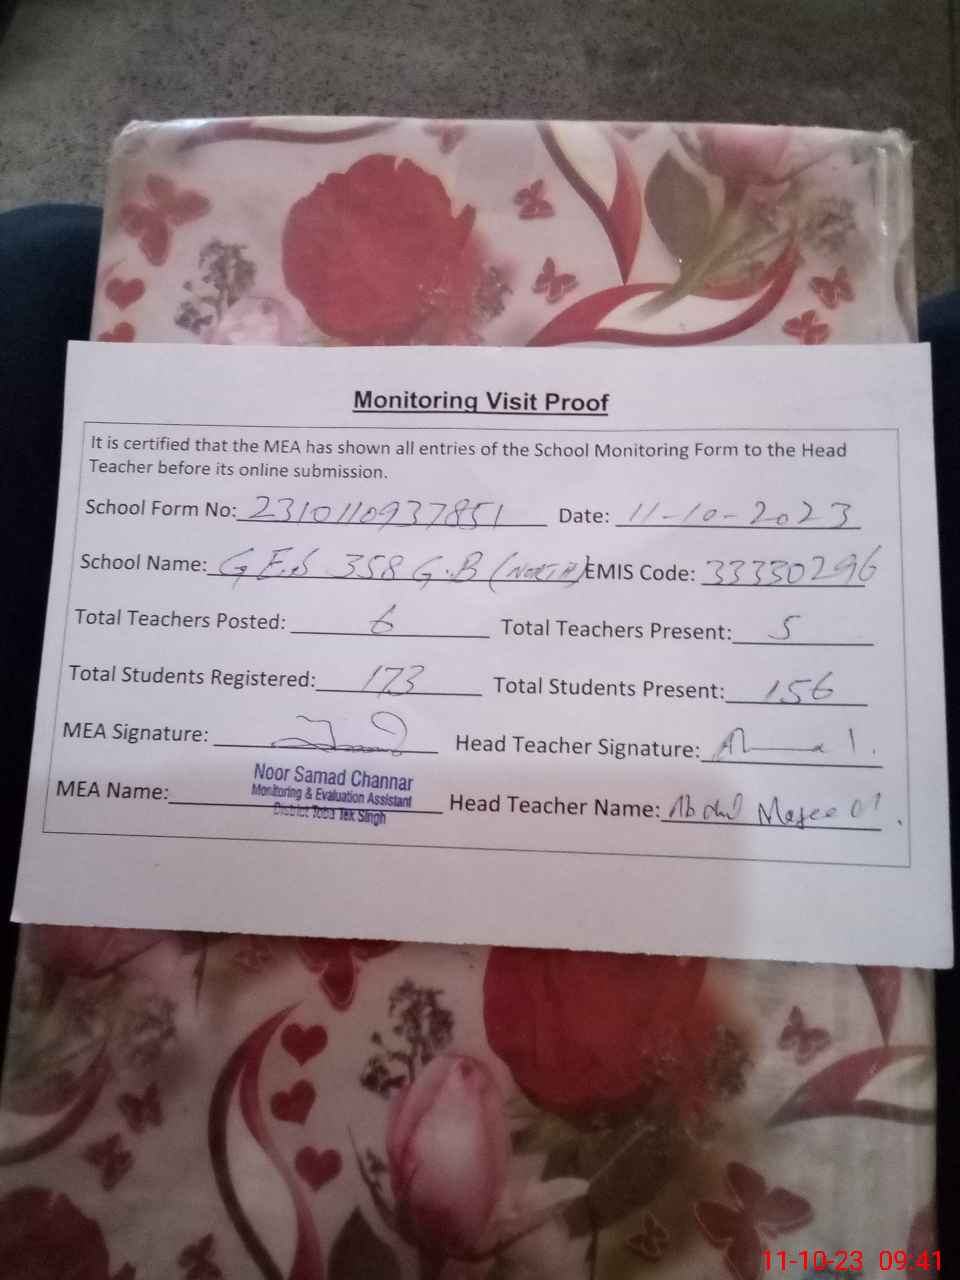 Monitoring Visit Proof
It is certified that the MEA has shown all entries of the School Monitoring Form to the Head
Teacher before its online submission.
School Form No: 2310110937851 Date: 11-10-2023
School Name: G.E.S 358 G.B (NORTH) EMIS Code: 33330296
Total Teachers Posted: 6 Total Teachers Present: 5
Total Students Registered: 173 Total Students Present: 156
MEA Signature: Head Teacher Signature:
Noor Samad Channar
Monitoring & Evaluation Assistant
District Toba Tek Singh
MEA Name: Head Teacher Name: Abdul Majeed
11-10-23 09:41